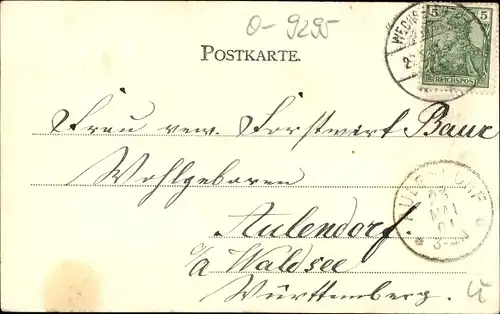 O-9295
POSTKARTE.
5 5
REICHSPOST
Frau verw. Forstwart Baur
Wohlgeboren
Aulendorf.
i/a Waldsee
Württemberg.
AULENDORF
23
MAI
01